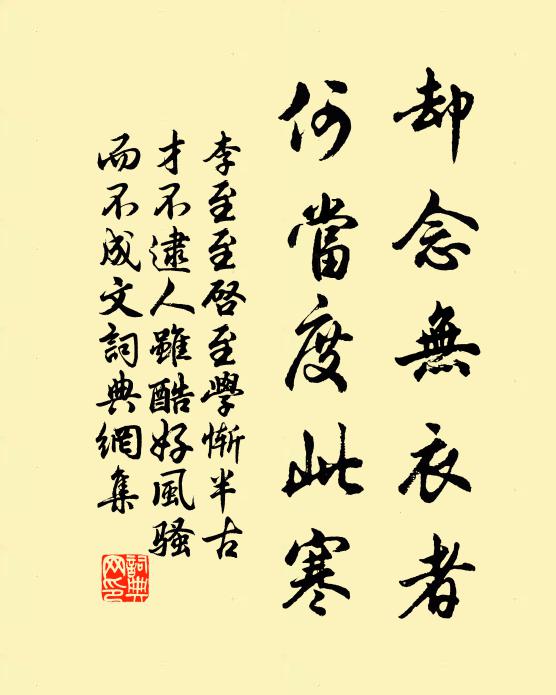 却念無衣者
何當度此寒
李至至啓至學慚半古
才不逮人雖酷好風騷
而不成文詞典網集
詞典
网印